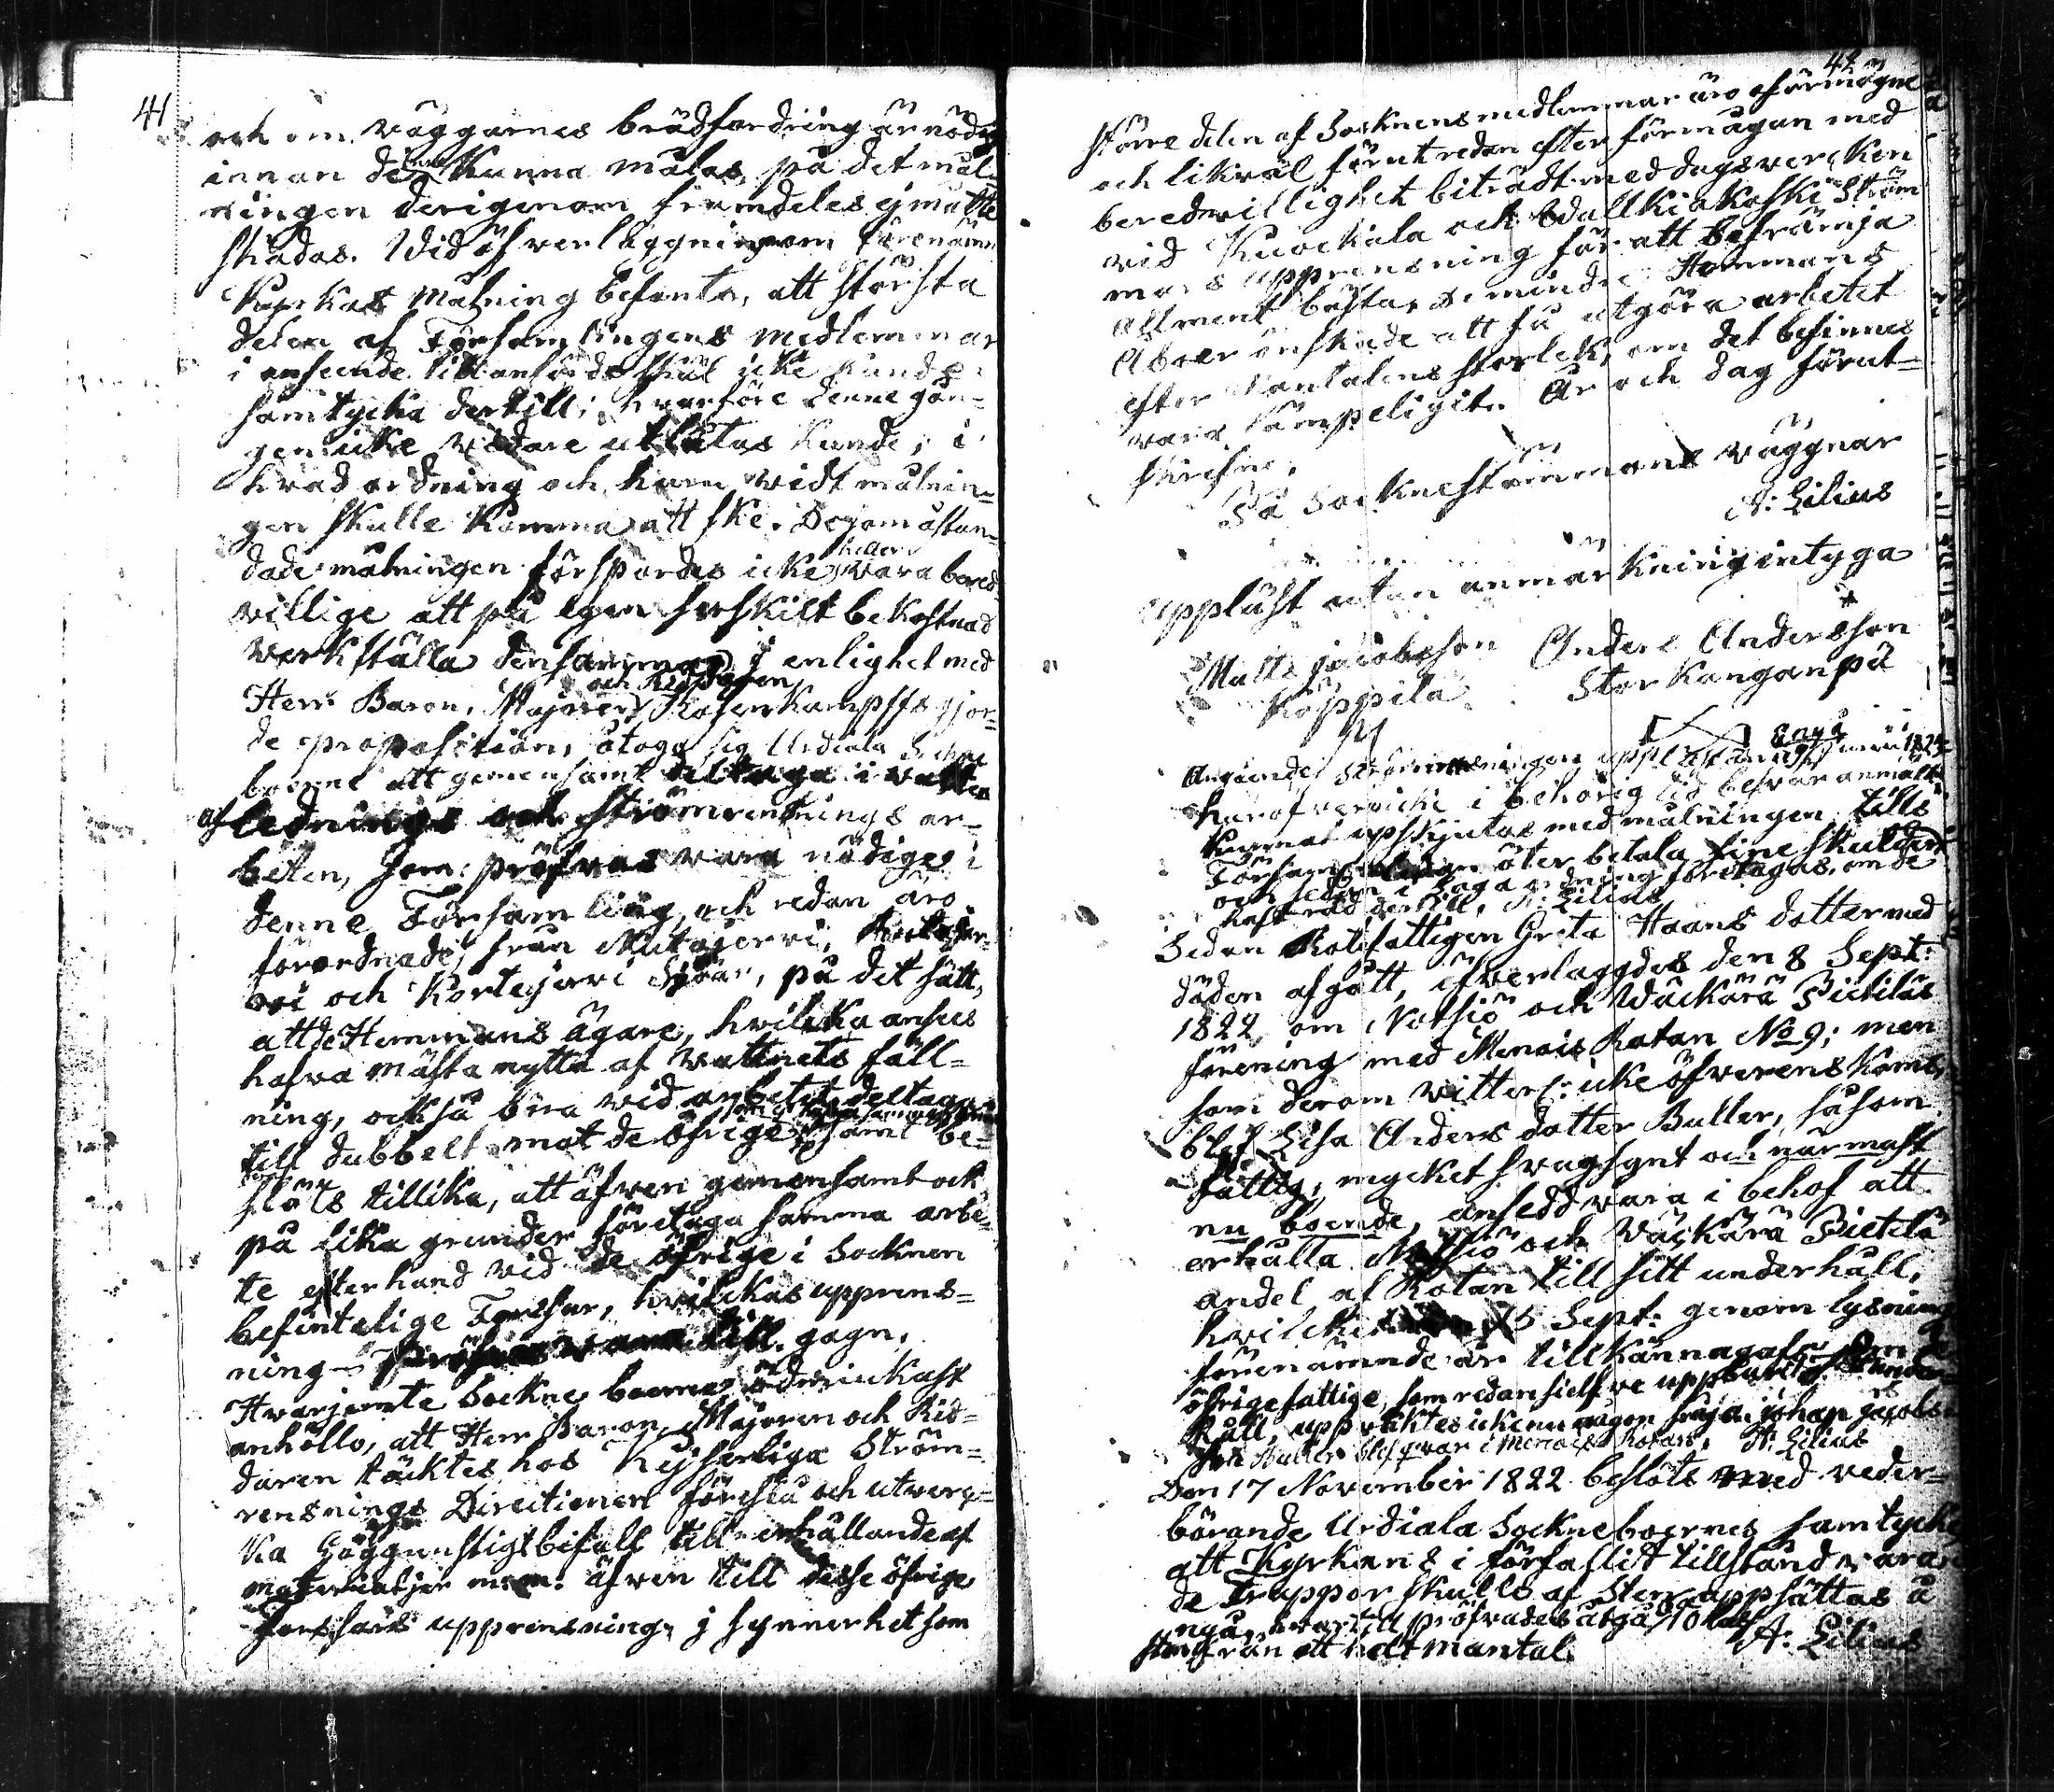 41
och om väggarnes brädfordring är nödig
innan de kunna målas, på det mål-
ningen derigenom framdeles ej måtte
skadas. Vid öfverläggning om förenämn
Kyrkas målning befants, att största
delen af Församlingens medlemmar
i anseende till anförde skäl icke kunde
samtycka dertill; hvarföre denne gån-
gen icke vidare utlåtas kunde, i
hvad ordning och huru vidt målnin-
gen skulle komma att ske. De som åstun-
dade målningen förspordes icke heller vara bered-
villige att på egen serskilt bekostnad
verkställa densamma. I enlighet med
Herr Baron, Majoren och Riddaren Kampffs gjor-
de proposition, åtogo sig Urdiala Sockne
boerne att gemensamt deltaga i vatten
aflednings och strömrensnings ar-
beten, som pröfvas vara nödige i
denne Församling, och redan äro
förordnade, från Nutajervi,
vi och Kortejervi Sjöar, på det sätt,
att de Hemmans ägare, hvilka anses
hafva mästa nytta af vattnets fäll-
ning, också böra vid arbetet deltaga
till dubbelt mot de öfrige samt be-
slöts tillika, att äfven gemensamt och
på lika grunder företaga samma arbe-
te efterhand vid de öfrige i Socknen
befintelige Forssar, hvilkas upprens-
ning pröfvas vara till gagn.
Hvarjemte Sockne boerne ödmjukast
anhöllo, att Herr Baron, Majoren och Rid-
daren täcktes hos Kejserliga Ström-
rensnings Directionen föreslå och utver-
ka höggunstigt bifall till erhållande af
materialjer m.m. äfven till desse öfrige
forssars upprensning, i synnerhet som
42
större delen af Socknens medlemmar äro oförmögne
och likväl förut redan efter förmågan med
beredvillighet biträdt med dagsvercken
vid Kuockala och Wallkiakoski Ström
mars upprensning för att befrämja
allment bästa. De mindre Hemmans
Aboer önskade att få utgöra arbetet
efter Mantalens storlek, om det befinnes
vara lämpeligit. År och dag förut-
skrifne.
På Socknestämmans väggnar
A: Lilius
uppläst utan anmärkning intyga
Matts Jacobsson Anders Andersson
Köppilä Stor Kanganpä
Angående strömrensningen uppläst
häröfver icke i behörig tid besvär anmält
kunnat upskjutas med målningen tills
Församlingen åter betala sine skulder
och sedan i laga ordning företagas, om de
haft råd dertill. A: Lilius
Sedan Rotefattigen Greta Haans dotter med
döden afgått, öfverlaggdes den 8 Sept:
1822, om Notsiö och Wäckärä Pietilas
förening med Menois Rotan No 9; men
som derom vitterl: icke öfverenskoms,
blef Lisa Anders dotter Buller, såsom
fattig, mycket svagsynt och närmast
nu boende, ansedd vara i behof att
erhålla Notsiö och Wäckärä Pietilä
andel af Rotan till sitt underhåll,
hvilket 15 Sept: genom lysning
förenämnde är tillkännagafs. Den
öfrige fattige, som redan sielfve uppburit under-
håll, uppräktes icke nu någon Johan Jacobs-
son Buller blef qvar i Menois Rotan. A: Lilius
Den 17 November 1822 beslöts med veder-
börande Urdiala Sockneboernes samtycke
att Kyrkans i förfallit tillstånd varan
de Trappor skulle af Sten uppsättas å
nyo, hvartill pröfvades åtgå 10 lass
sten från ett helt mantal. A: Lilius